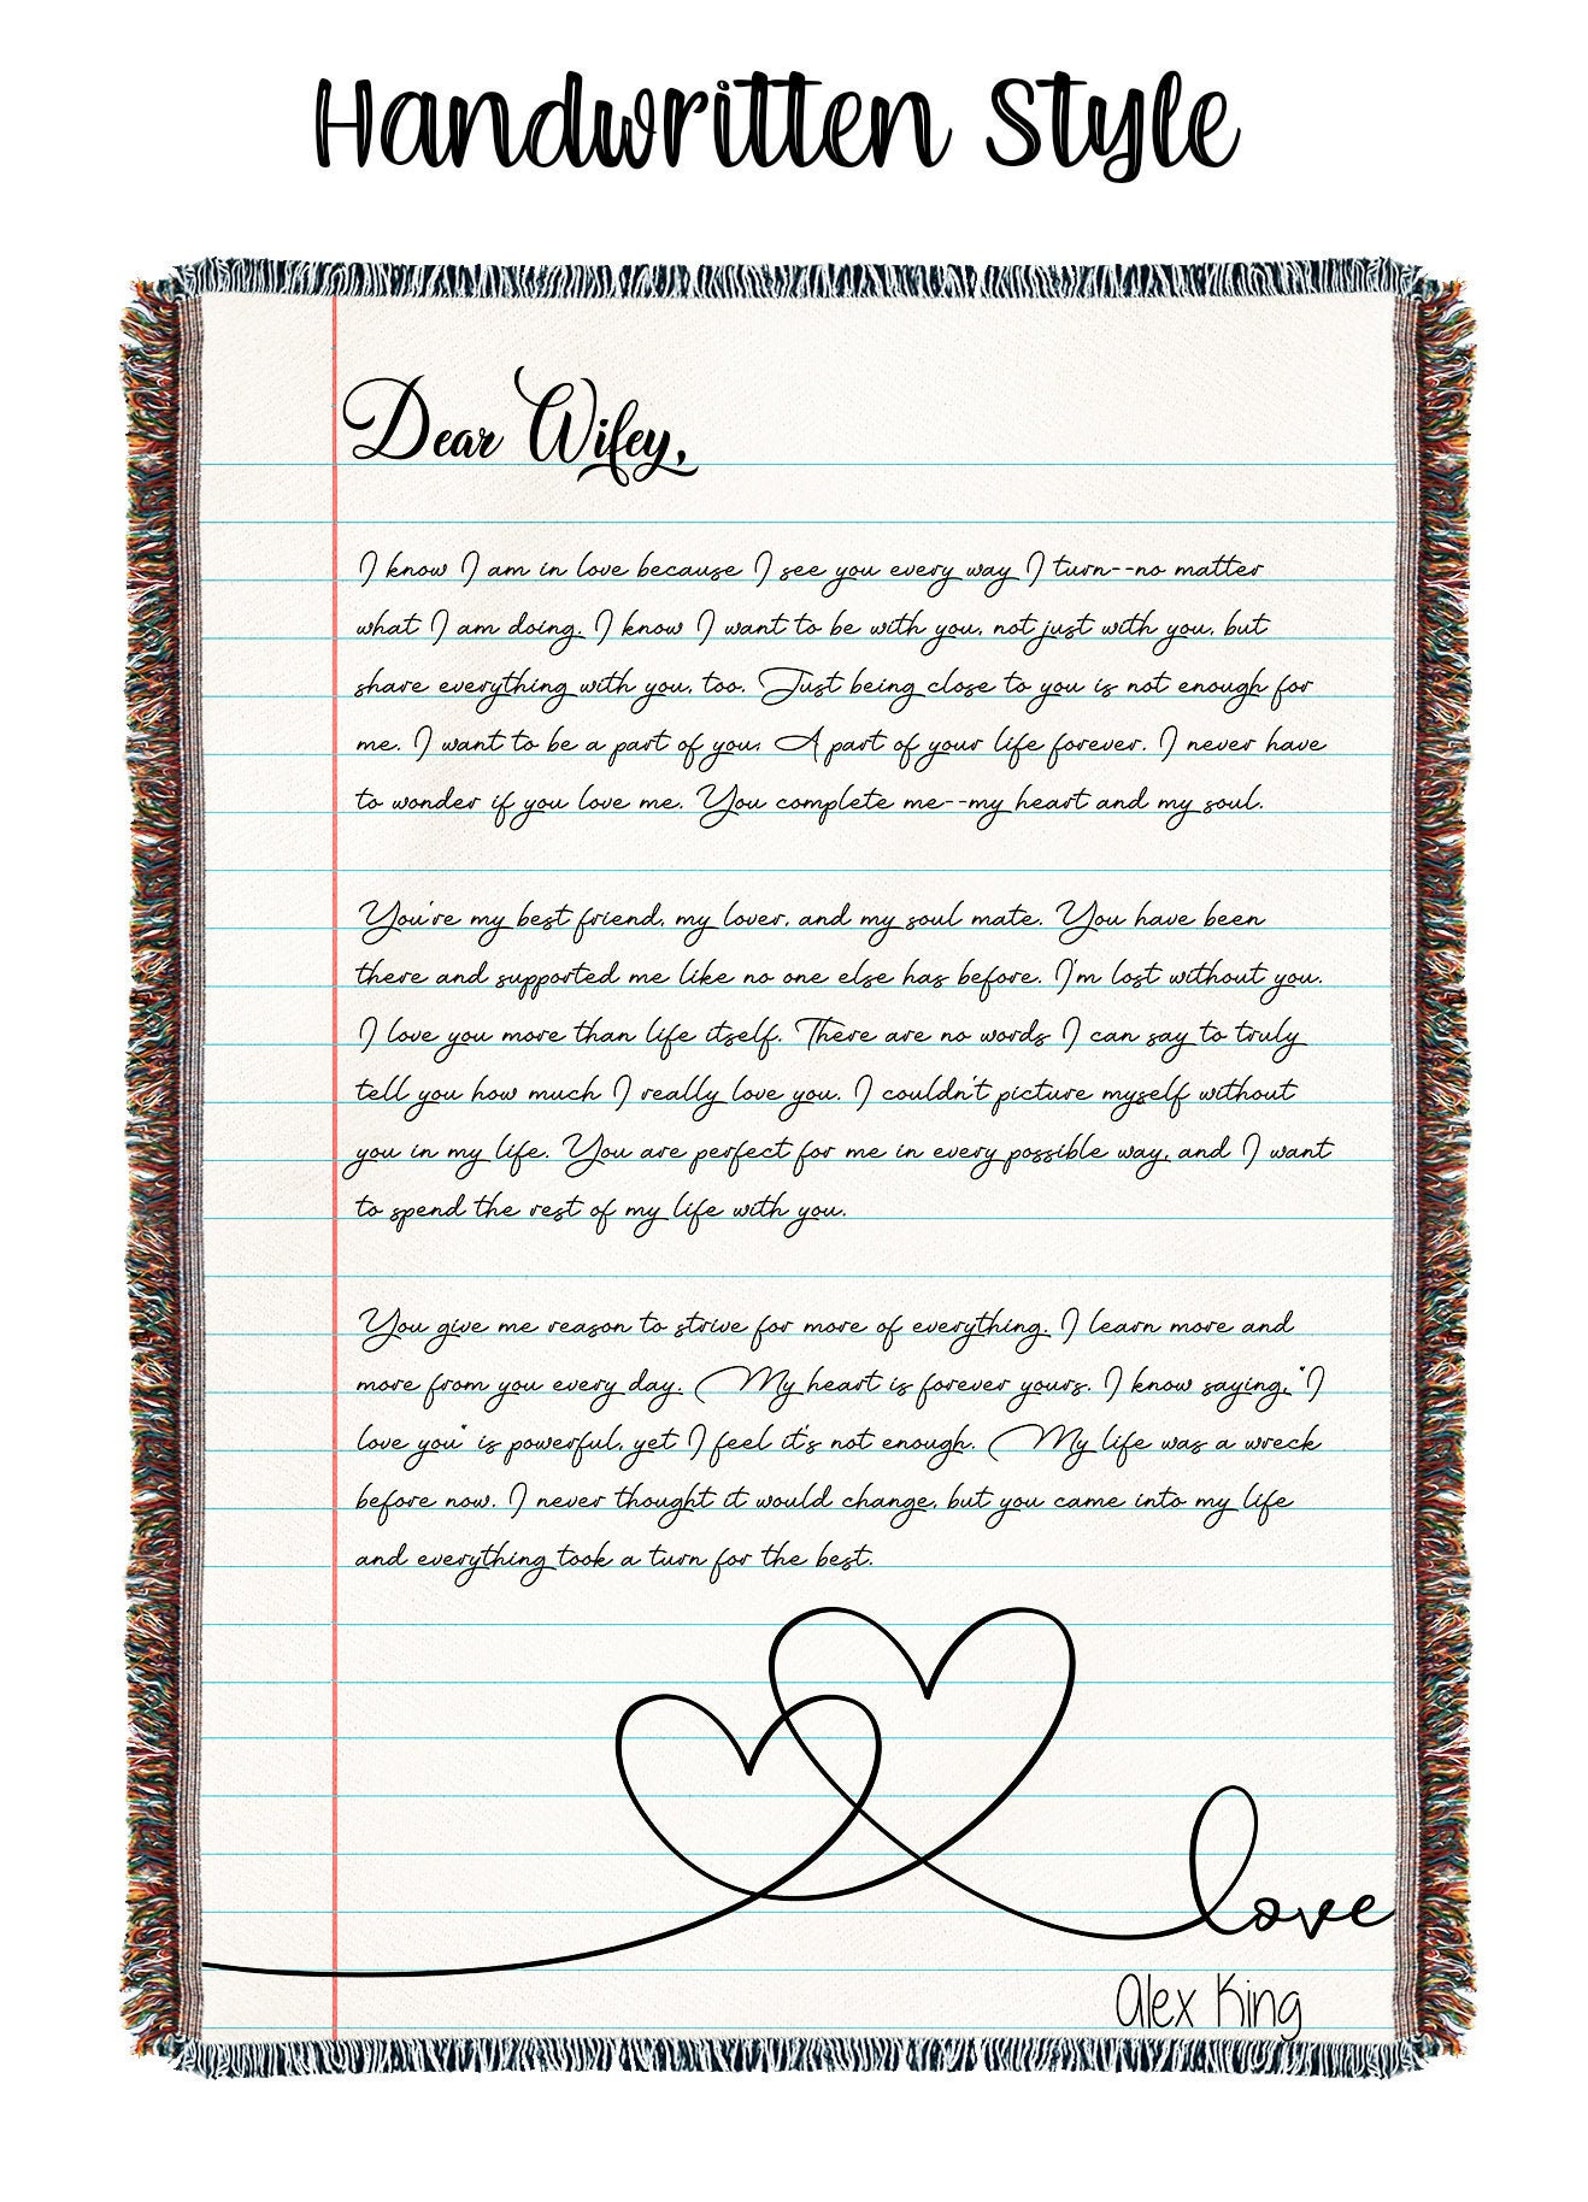 Handwritten Style
Dear Wifey,
I know I am in love because I see you every way I turn--no matter
what I am doing. I know I want to be with you, not just with you, but
share everything with you, too. Just being close to you is not enough for
me. I want to be a part of you. A part of your life forever. I never have
to wonder if you love me. You complete me--my heart and my soul.
You're my best friend, my lover, and my soul mate. You have been
there and supported me like no one else has before. I'm lost without you.
I love you more than life itself. There are no words I can say to truly
tell you how much I really love you. I couldn't picture myself without
you in my life. You are perfect for me in every possible way, and I want
to spend the rest of my life with you.
You give me reason to strive for more of everything. I learn more and
more from you every day. My heart is forever yours. I know saying, "I
love you" is powerful, yet I feel it's not enough. My life was a wreck
before now. I never thought it would change, but you came into my life
and everything took a turn for the best.
love
Alex King